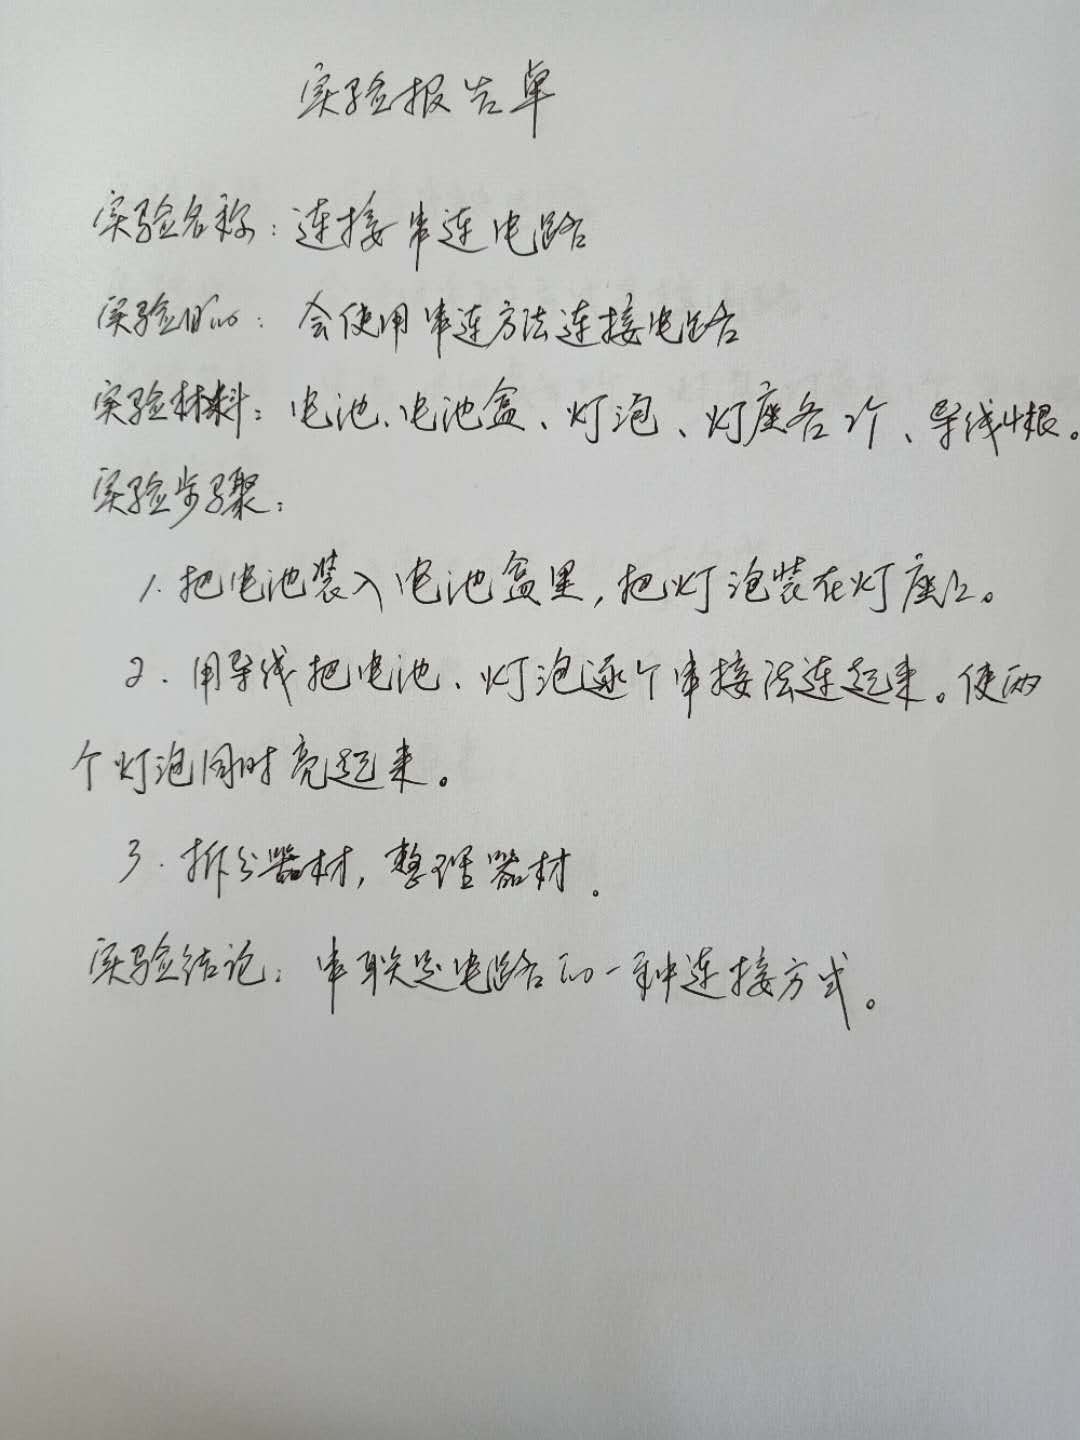 实验报告单
实验名称：连接串连电路
实验目的：会使用串连方法连接电路
实验材料：电池、电池盒、灯泡、灯座各2个、导线4根。
实验步骤：
1. 把电池装入电池盒里，把灯泡装在灯座上。
2. 用导线把电池、灯泡逐个串接法连起来。使两
个灯泡同时亮起来。
3. 拆分器材，整理器材.
实验结论：串联是电路的一种连接方式。